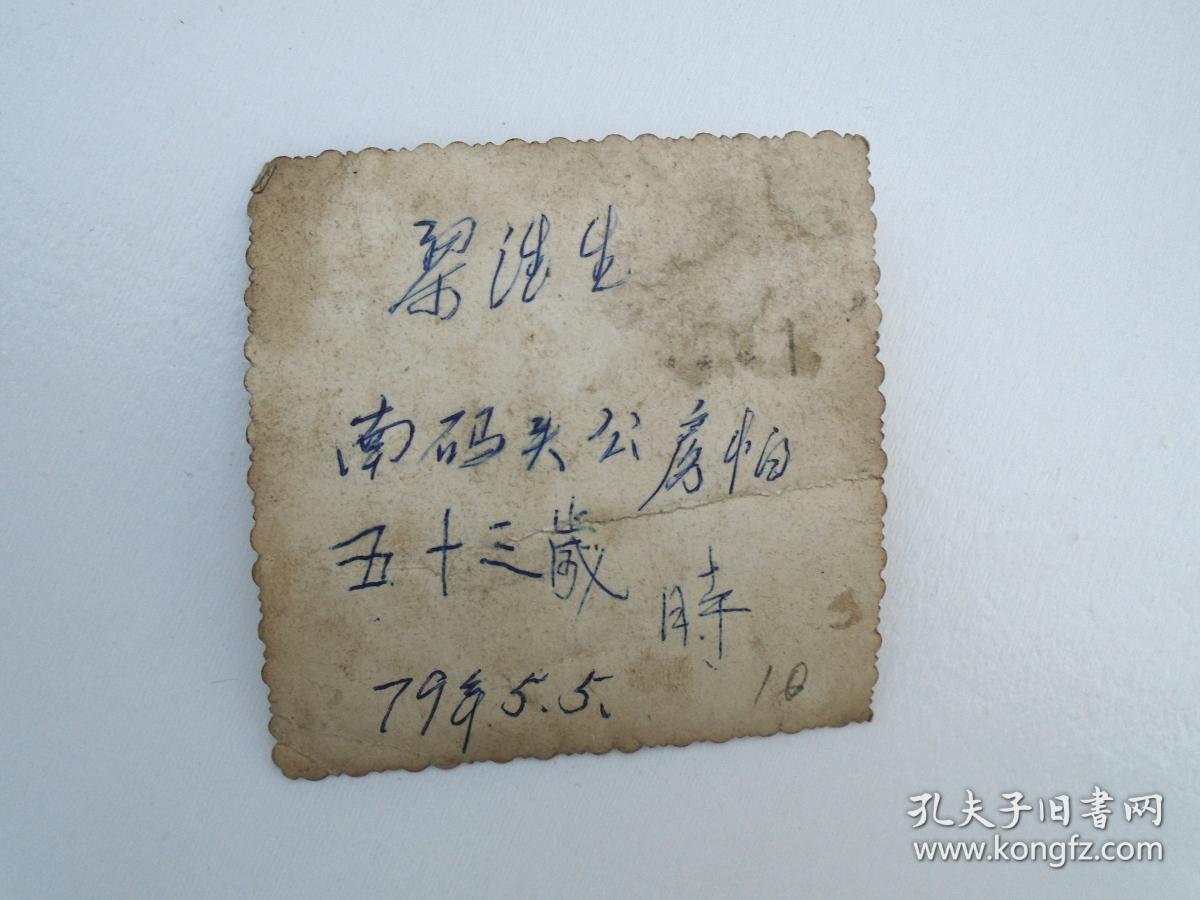 梁淮生
南码头公房怕
五十三歲
時
79年5.5.
10
孔夫子旧書网
www.kongfz.com